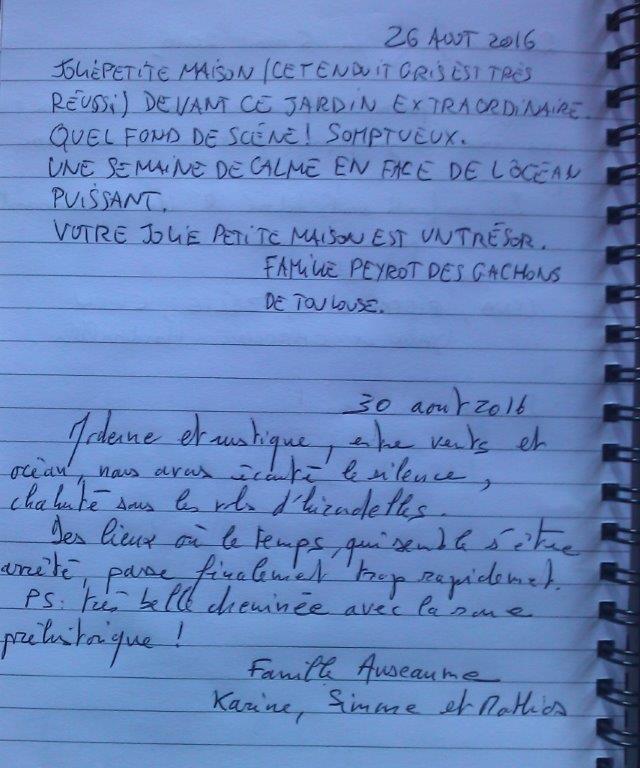 26 AOUT 2016
JOLIE PETITE MAISON (CET ENDUIT GRIS EST TRÈS
RÉUSSI) DEVANT CE JARDIN EXTRAORDINAIRE.
QUEL FOND DE SCÈNE! SOMPTUEUX.
UNE SEMAINE DE CALME EN FACE DE L'OCÉAN
PUISSANT.
VOTRE JOLIE PETITE MAISON EST UN TRÉSOR.
FAMILLE PEYROT DES GACHONS
DE TOULOUSE.
30 aout 2016
Moderne et rustique, entre vents et
océan, nous avons écouté le silence,
chahuté sous les vols d'hirondelles.
Des lieux où le temps, qui semble s'être
arrêté, passe finalement trop rapidement.
PS: très belle cheminée avec la
préhistorique !
Famille Auseaume
Karine, Simone et Mathias